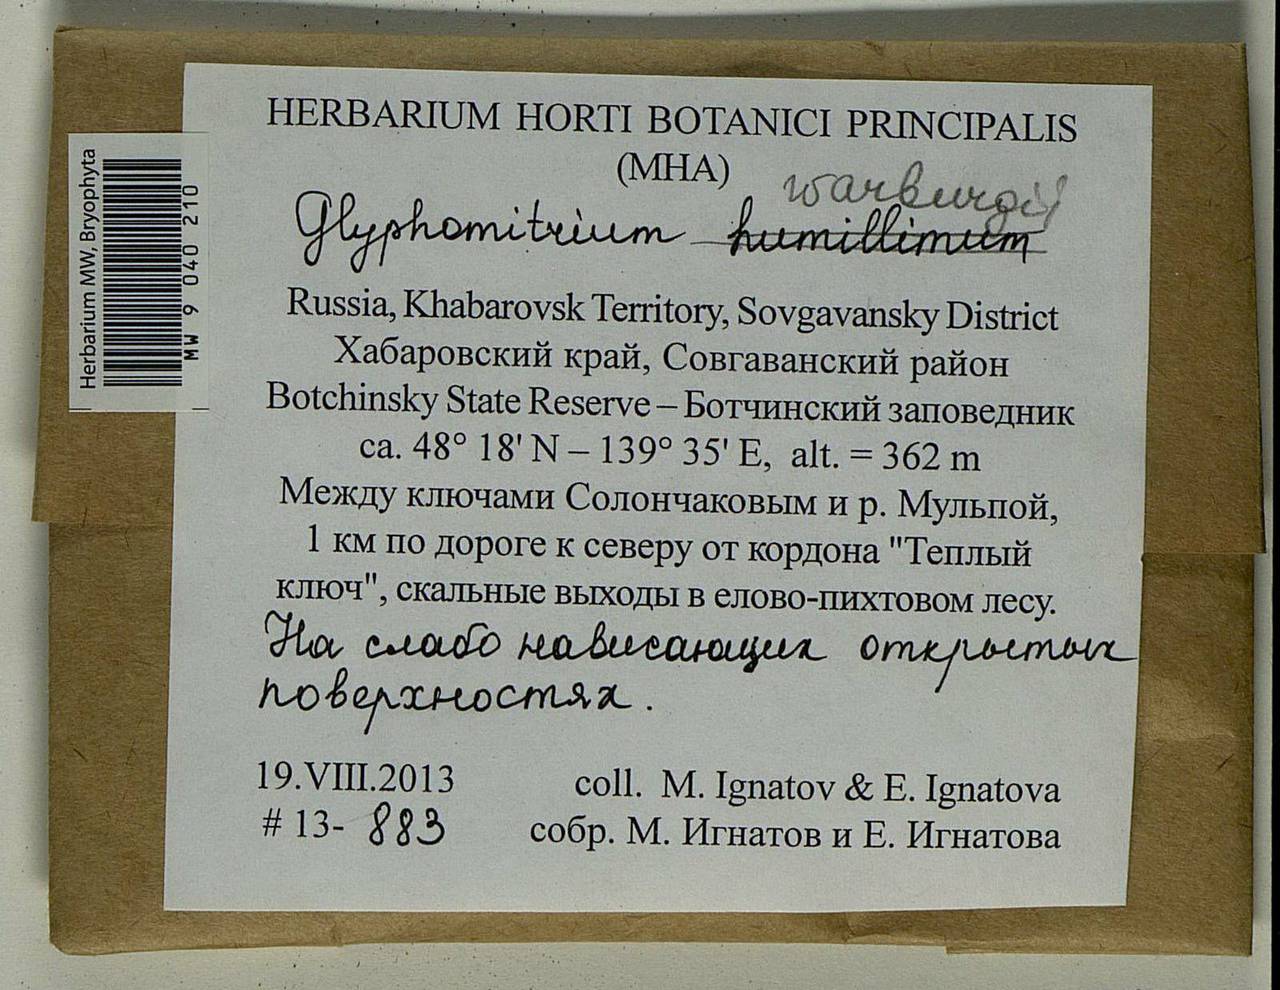 HERBARIUM HORTI BOTANICI PRINCIPALIS
(MHA)
warburgii
Glyphomitrium humillimum
Russia, Khabarovsk Territory, Sovgavansky District
Хабаровский край, Совгаванский район
Botchinsky State Reserve – Ботчинский заповедник
ca. 48° 18' N – 139° 35' E, alt. = 362 m
Между ключами Солончаковым и р. Мульпой,
1 км по дороге к северу от кордона "Теплый
ключ", скальные выходы в елово-пихтовом лесу.
На слабо нависающих открытых
поверхностях.
19.VIII.2013 coll. M. Ignatov & E. Ignatova
# 13- 883 собр. М. Игнатов и Е. Игнатова
Herbarium MW, Bryophyta
MW 9 040 210